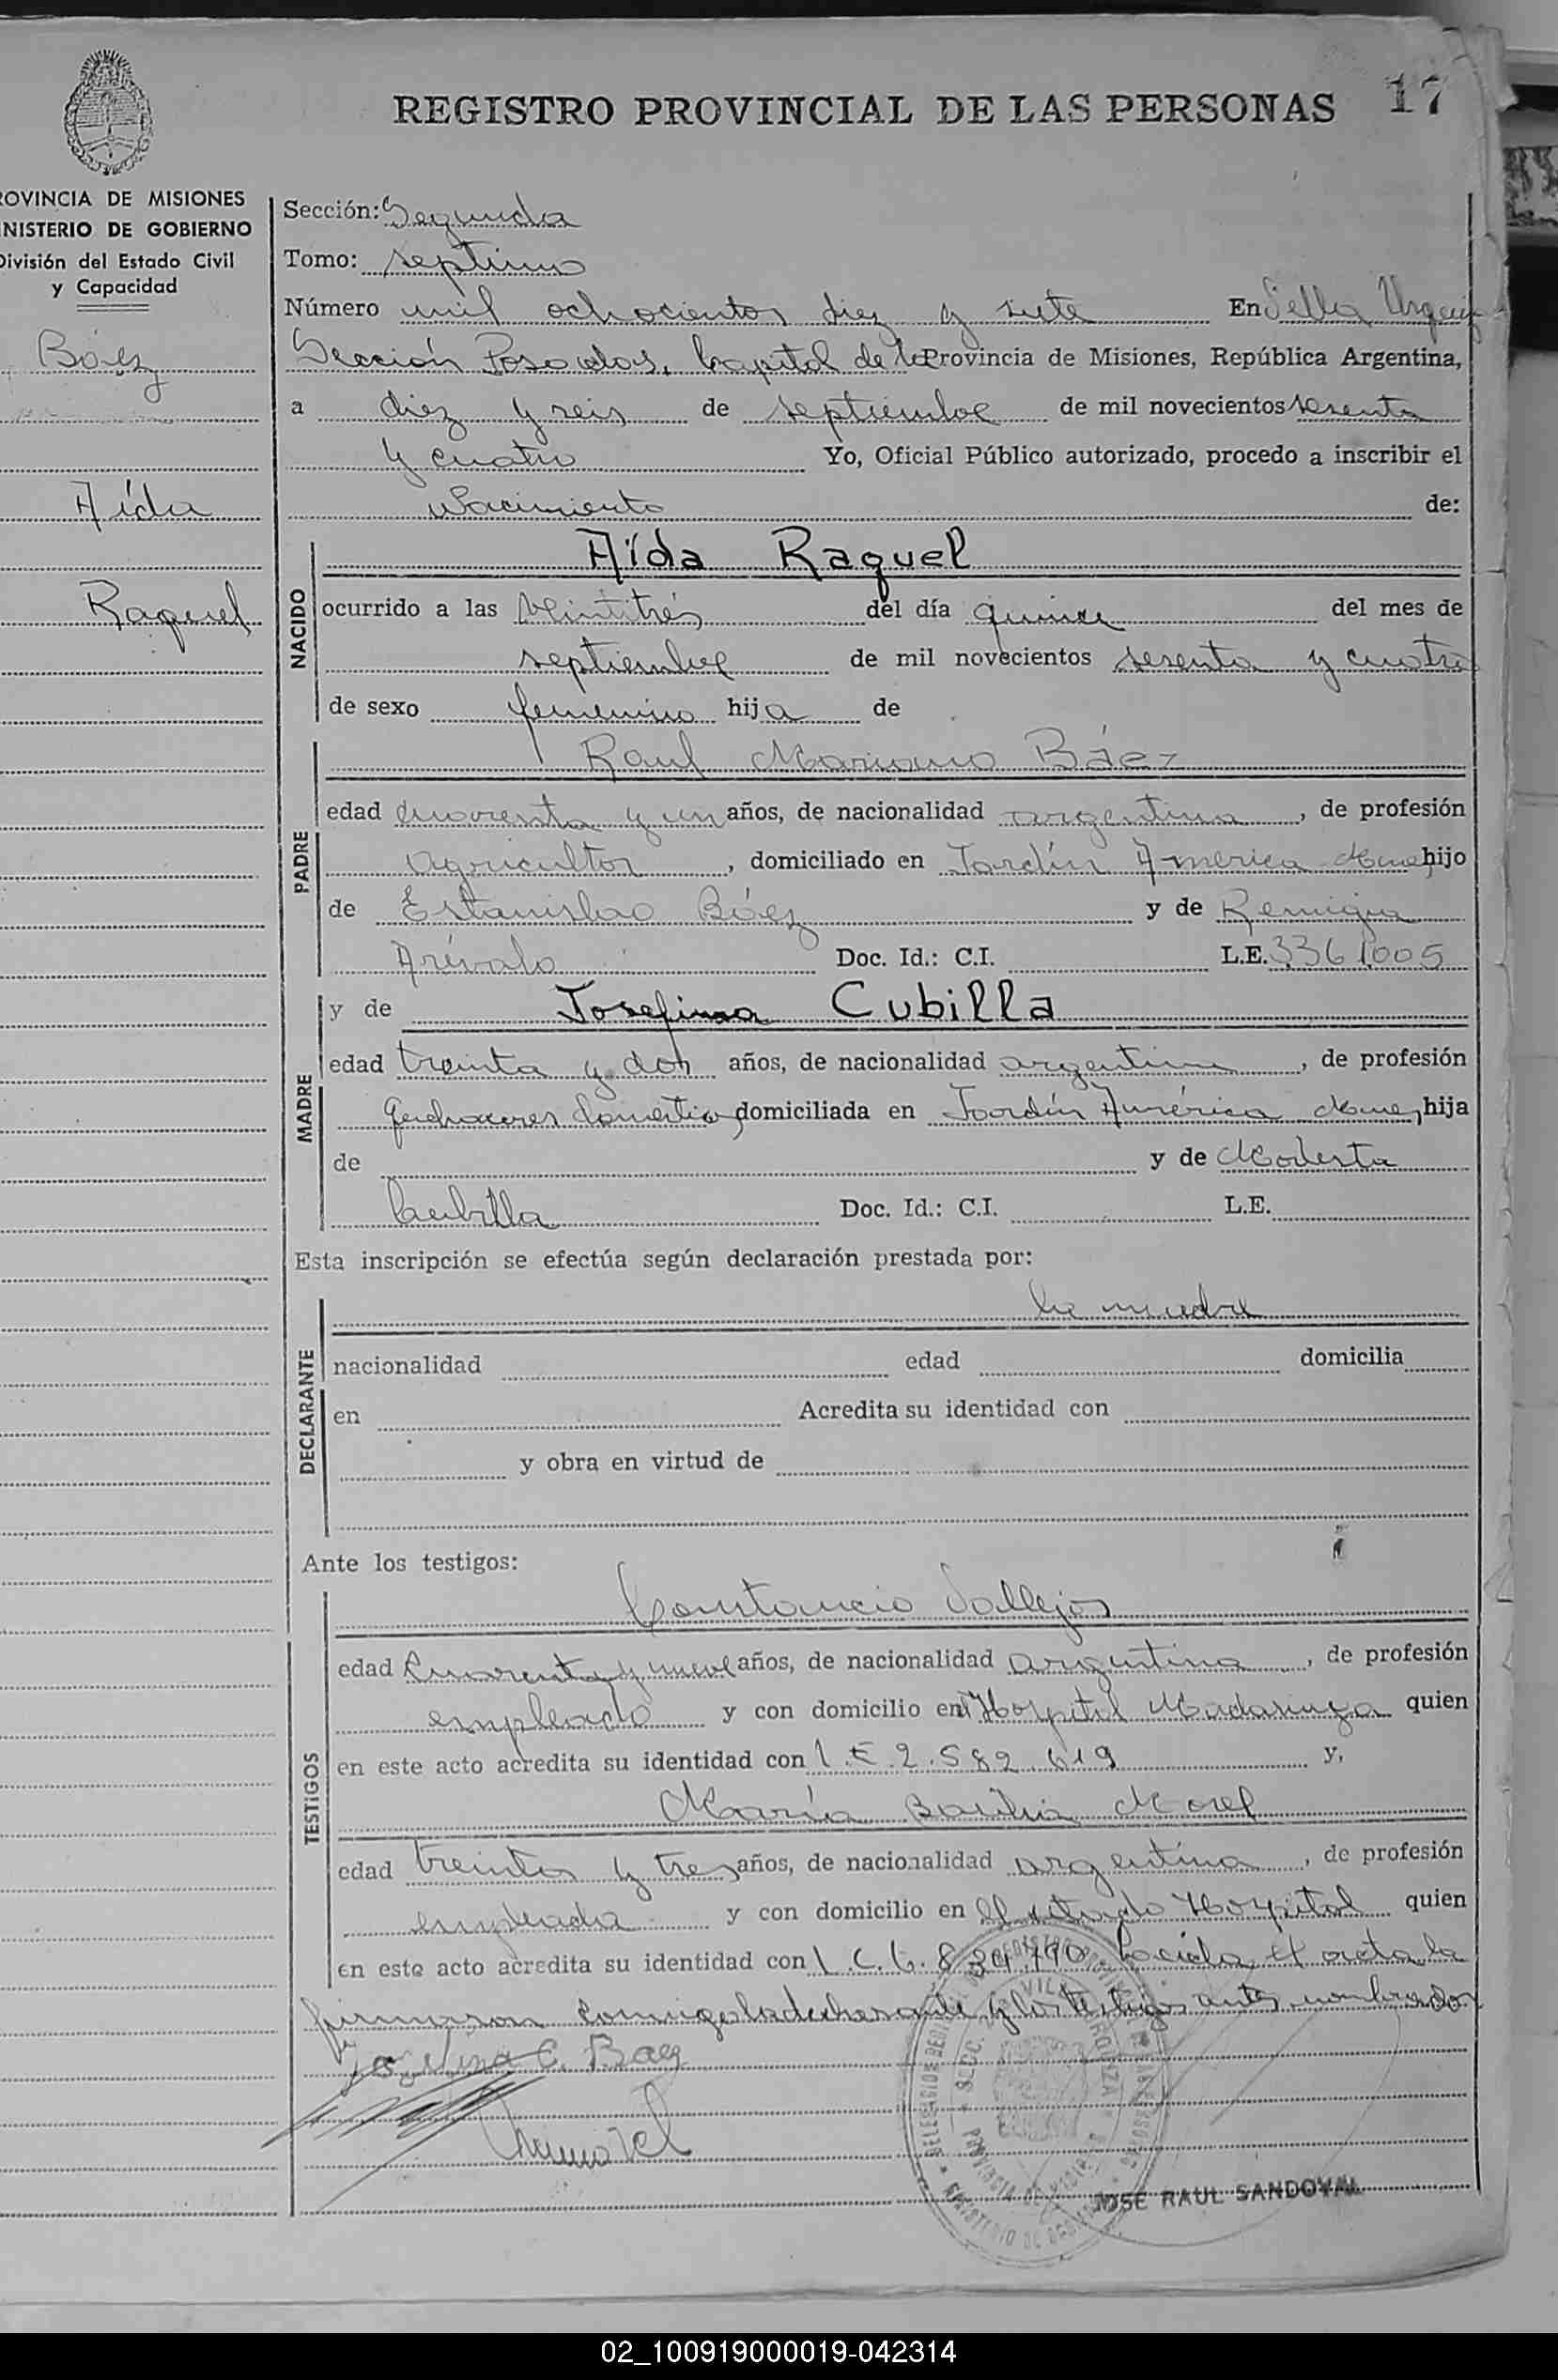 REGISTRO PROVINCIAL DE LAS PERSONAS 17
ROVINCIA DE MISIONES
NISTERIO DE GOBIERNO
División del Estado Civil
y Capacidad
Báez
Aída
Raquel
Sección: Segunda
Tomo: septimo
Número mil ochocientos diez y siete En Villa Urquiz
Sección Posadas, Capital de la Provincia de Misiones, República Argentina,
a diez y seis de septiembre de mil novecientos sesenta
y cuatro Yo, Oficial Público autorizado, procedo a inscribir el
Nacimiento de:
NACIDO
Aída Raquel
ocurrido a las veintitrés del día quince del mes de
septiembre de mil novecientos sesenta y cuatro
de sexo femenino hija de
PADRE
Raul Mariano Báez
edad cuarenta y un años, de nacionalidad argentina, de profesión
agricultor, domiciliado en Jardín America Mnes, hijo
de Estanislao Báez y de Remigia
Arévalo Doc. Id.: C.I. L.E. 3361.005
MADRE
y de Josefina Cubilla
edad treinta y dos años, de nacionalidad argentina, de profesión
Quehaceres domestico, domiciliada en Jardín América Mnes, hija
de y de Modesta
Cubilla Doc. Id.: C.I. L.E.
Esta inscripción se efectúa según declaración prestada por:
la madre
DECLARANTE
nacionalidad edad domicilia
en Acredita su identidad con
y obra en virtud de
Ante los testigos:
TESTIGOS
Constancio Vallejos
edad Cuarenta y nueve años, de nacionalidad argentina, de profesión
empleado y con domicilio en Hospital Madariaga quien
en este acto acredita su identidad con L.E 2.582.619 y,
María Morel
edad treinta y tres años, de nacionalidad argentina, de profesión
empleada y con domicilio en el citado Hospital quien
en este acto acredita su identidad con L.C.6.824.790 Leida el acta la
firmaron conmigo la declarante y los testigos antes nombrados
Josefina C. Baez
JOSE RAUL SANDOVAL
02_100919000019-042314